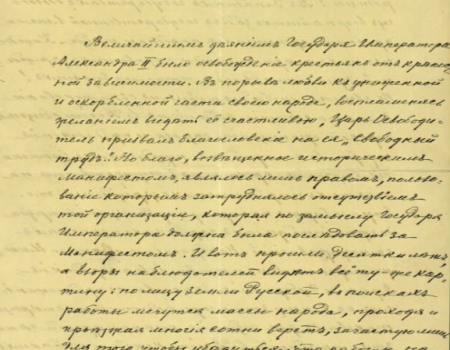 Величайшимъ даянiемъ Государя Императора
Александра II было освобожденiе крестьянъ отъ крѣпост-
ной зависимости. Въ порывѣ любви къ униженной
и оскорбленной части своего народа,
желанiемъ видѣть её счастливою, Царь Освободи-
тель призвалъ благословенiе на ея „свободный
трудъ". Но благо, возвѣщенное историческимъ
Манифестомъ, являлось лишь правомъ, пользо-
ванiе которымъ затруднялось отсутствiемъ
той организацiи, которая по замыслу Государя
Императора должна была послѣдовать за
Манифестомъ. И вотъ прошли десятки лѣтъ,
а взоры наблюдателей видятъ всё ту-же кар-
тину: по лицу земли Русской, въ поискахъ
работы мечутся массы народа, проходя и
проѣзжая многiя сотни верстъ, зачастую лишь
для того чтобы убѣдиться, что работы на